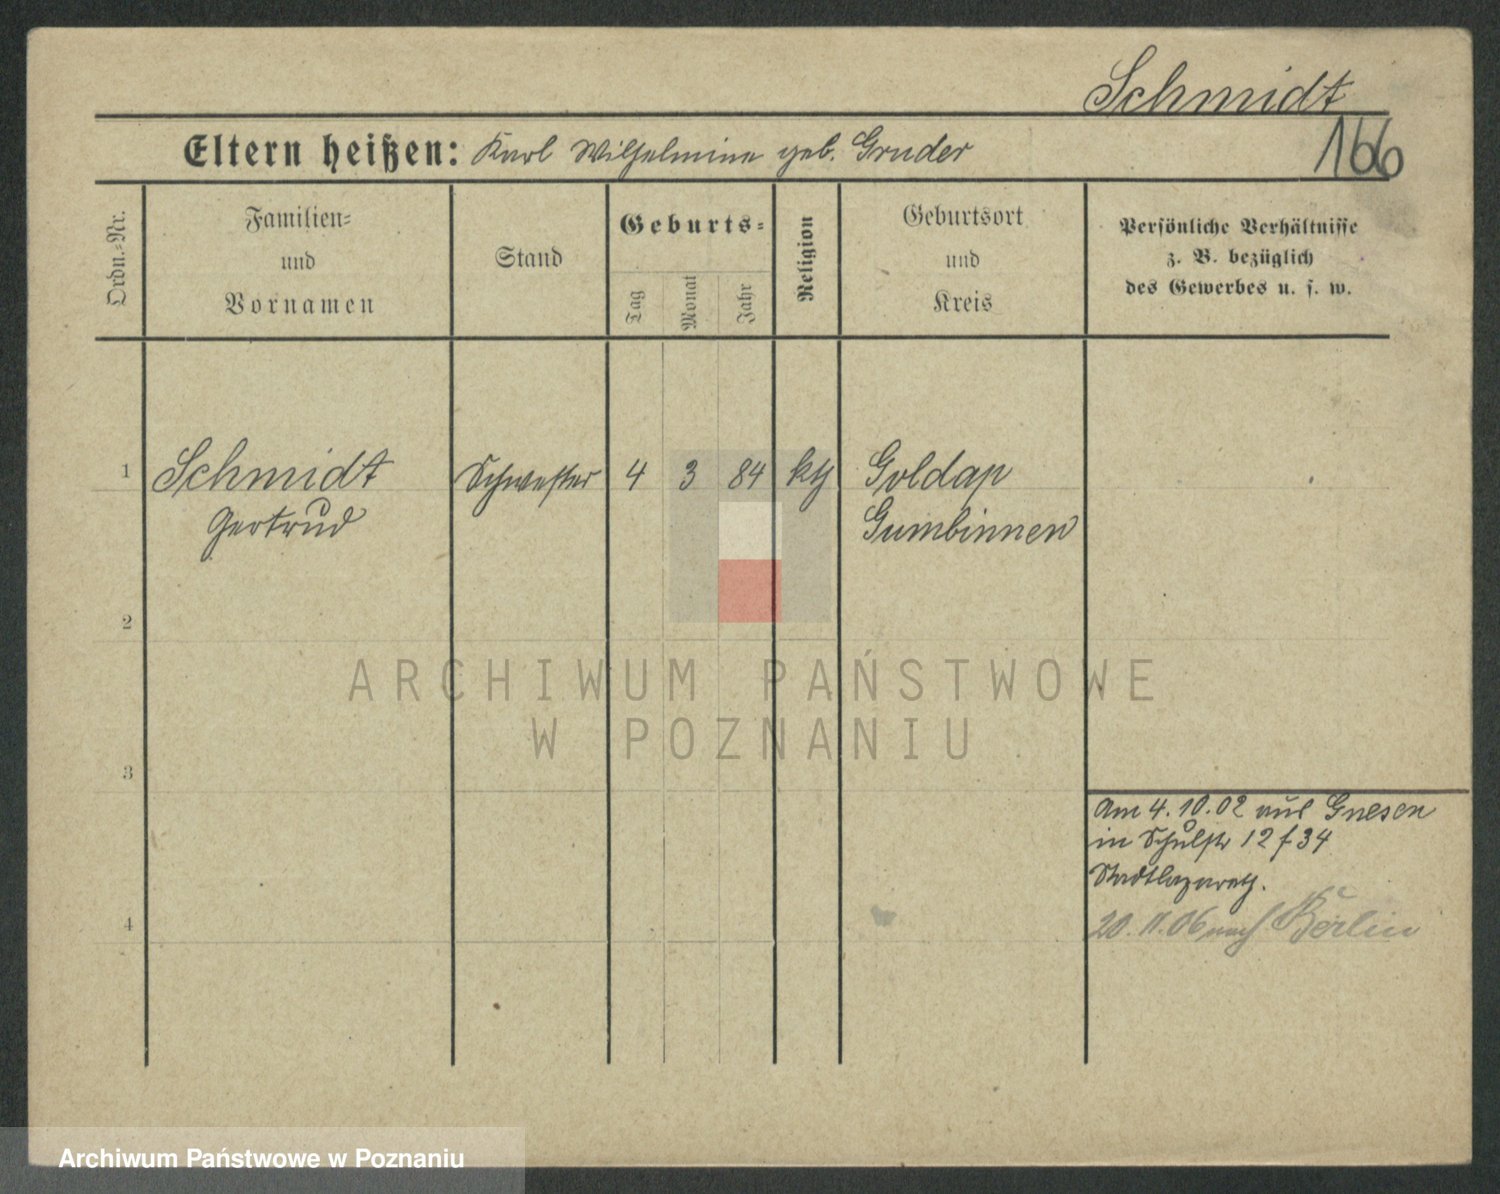 Schmidt
166
Eltern heißen: Karl Wilhelmine geb. Gruder
Ordn.-Nr.
Familien-
und
Vornamen
Stand
Geburts-
Tag
Monat
Jahr
Religion
Geburtsort
und
Kreis
Persönliche Verhältnisse
z. B. bezüglich
des Gewerbes u. s. w.
1 Schmidt Schwester 4 3 84 kth Goldap
Gertrud Gumbinnen
2
ARCHIWUM PAŃSTWOWE
W POZNANIU
3
Am 4.10.02 aus Gnesen
in Schulstr 12 f 34
Stadtlazareth.
4
20.11.06 nach Berlin
Archiwum Państwowe w Poznaniu